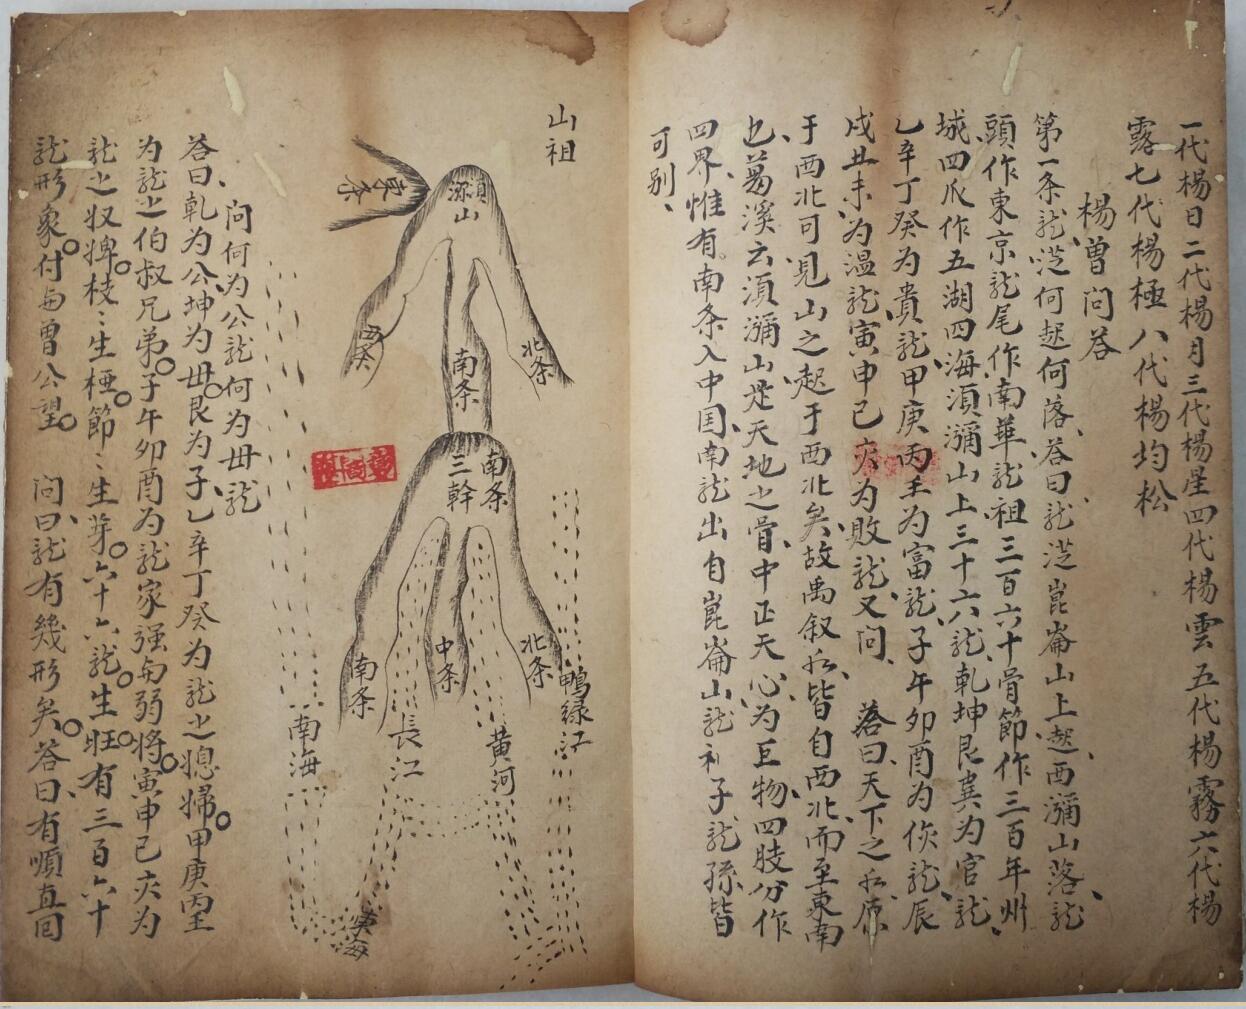 一代楊日二代楊月三代楊星四代楊雲五代楊霧六代楊
露七代楊極八代楊均松
楊曽问荅
第一条龙従何起何落荅曰龙従崑崙山上起西瀰山落龙
頭作東京龙尾作南華龙祖三百六十骨節作三百年州
城四爪作五湖四海湏瀰山上三十六龙乹坤艮巽为官龙
乙辛丁癸为貴龙甲庚丙壬为富龙子午夘酉为侯龙辰
戌丑未为温龙寅申巳亥为敗龙又问荅曰天下之水原
于西北可見山之起于西北矣故禹叙水皆自西北而至東南
也葛溪云湏瀰山是天地之骨中正天心为巨物四肢分作
四界惟有南条入中国南龙出自崑崙山龙祖子龙孫皆
可别
山祖
東条
須瀰山
西条
南条
北条
南条三幹
南条
中条
北条
鴨緑江
黄河
長江
南海
海
问何为公龙何为毋龙
荅曰乹为公坤为毋艮为子乙辛丁癸为龙之媳婦甲庚丙壬
为龙之伯叔兄弟子午卯酉为龙家强与弱将寅申巳亥为
龙之奴婢枝〻生極節〻生芽六十六龙生旺有三百六十
龙形象付与曽公望问曰龙有幾形矣荅曰有順直回